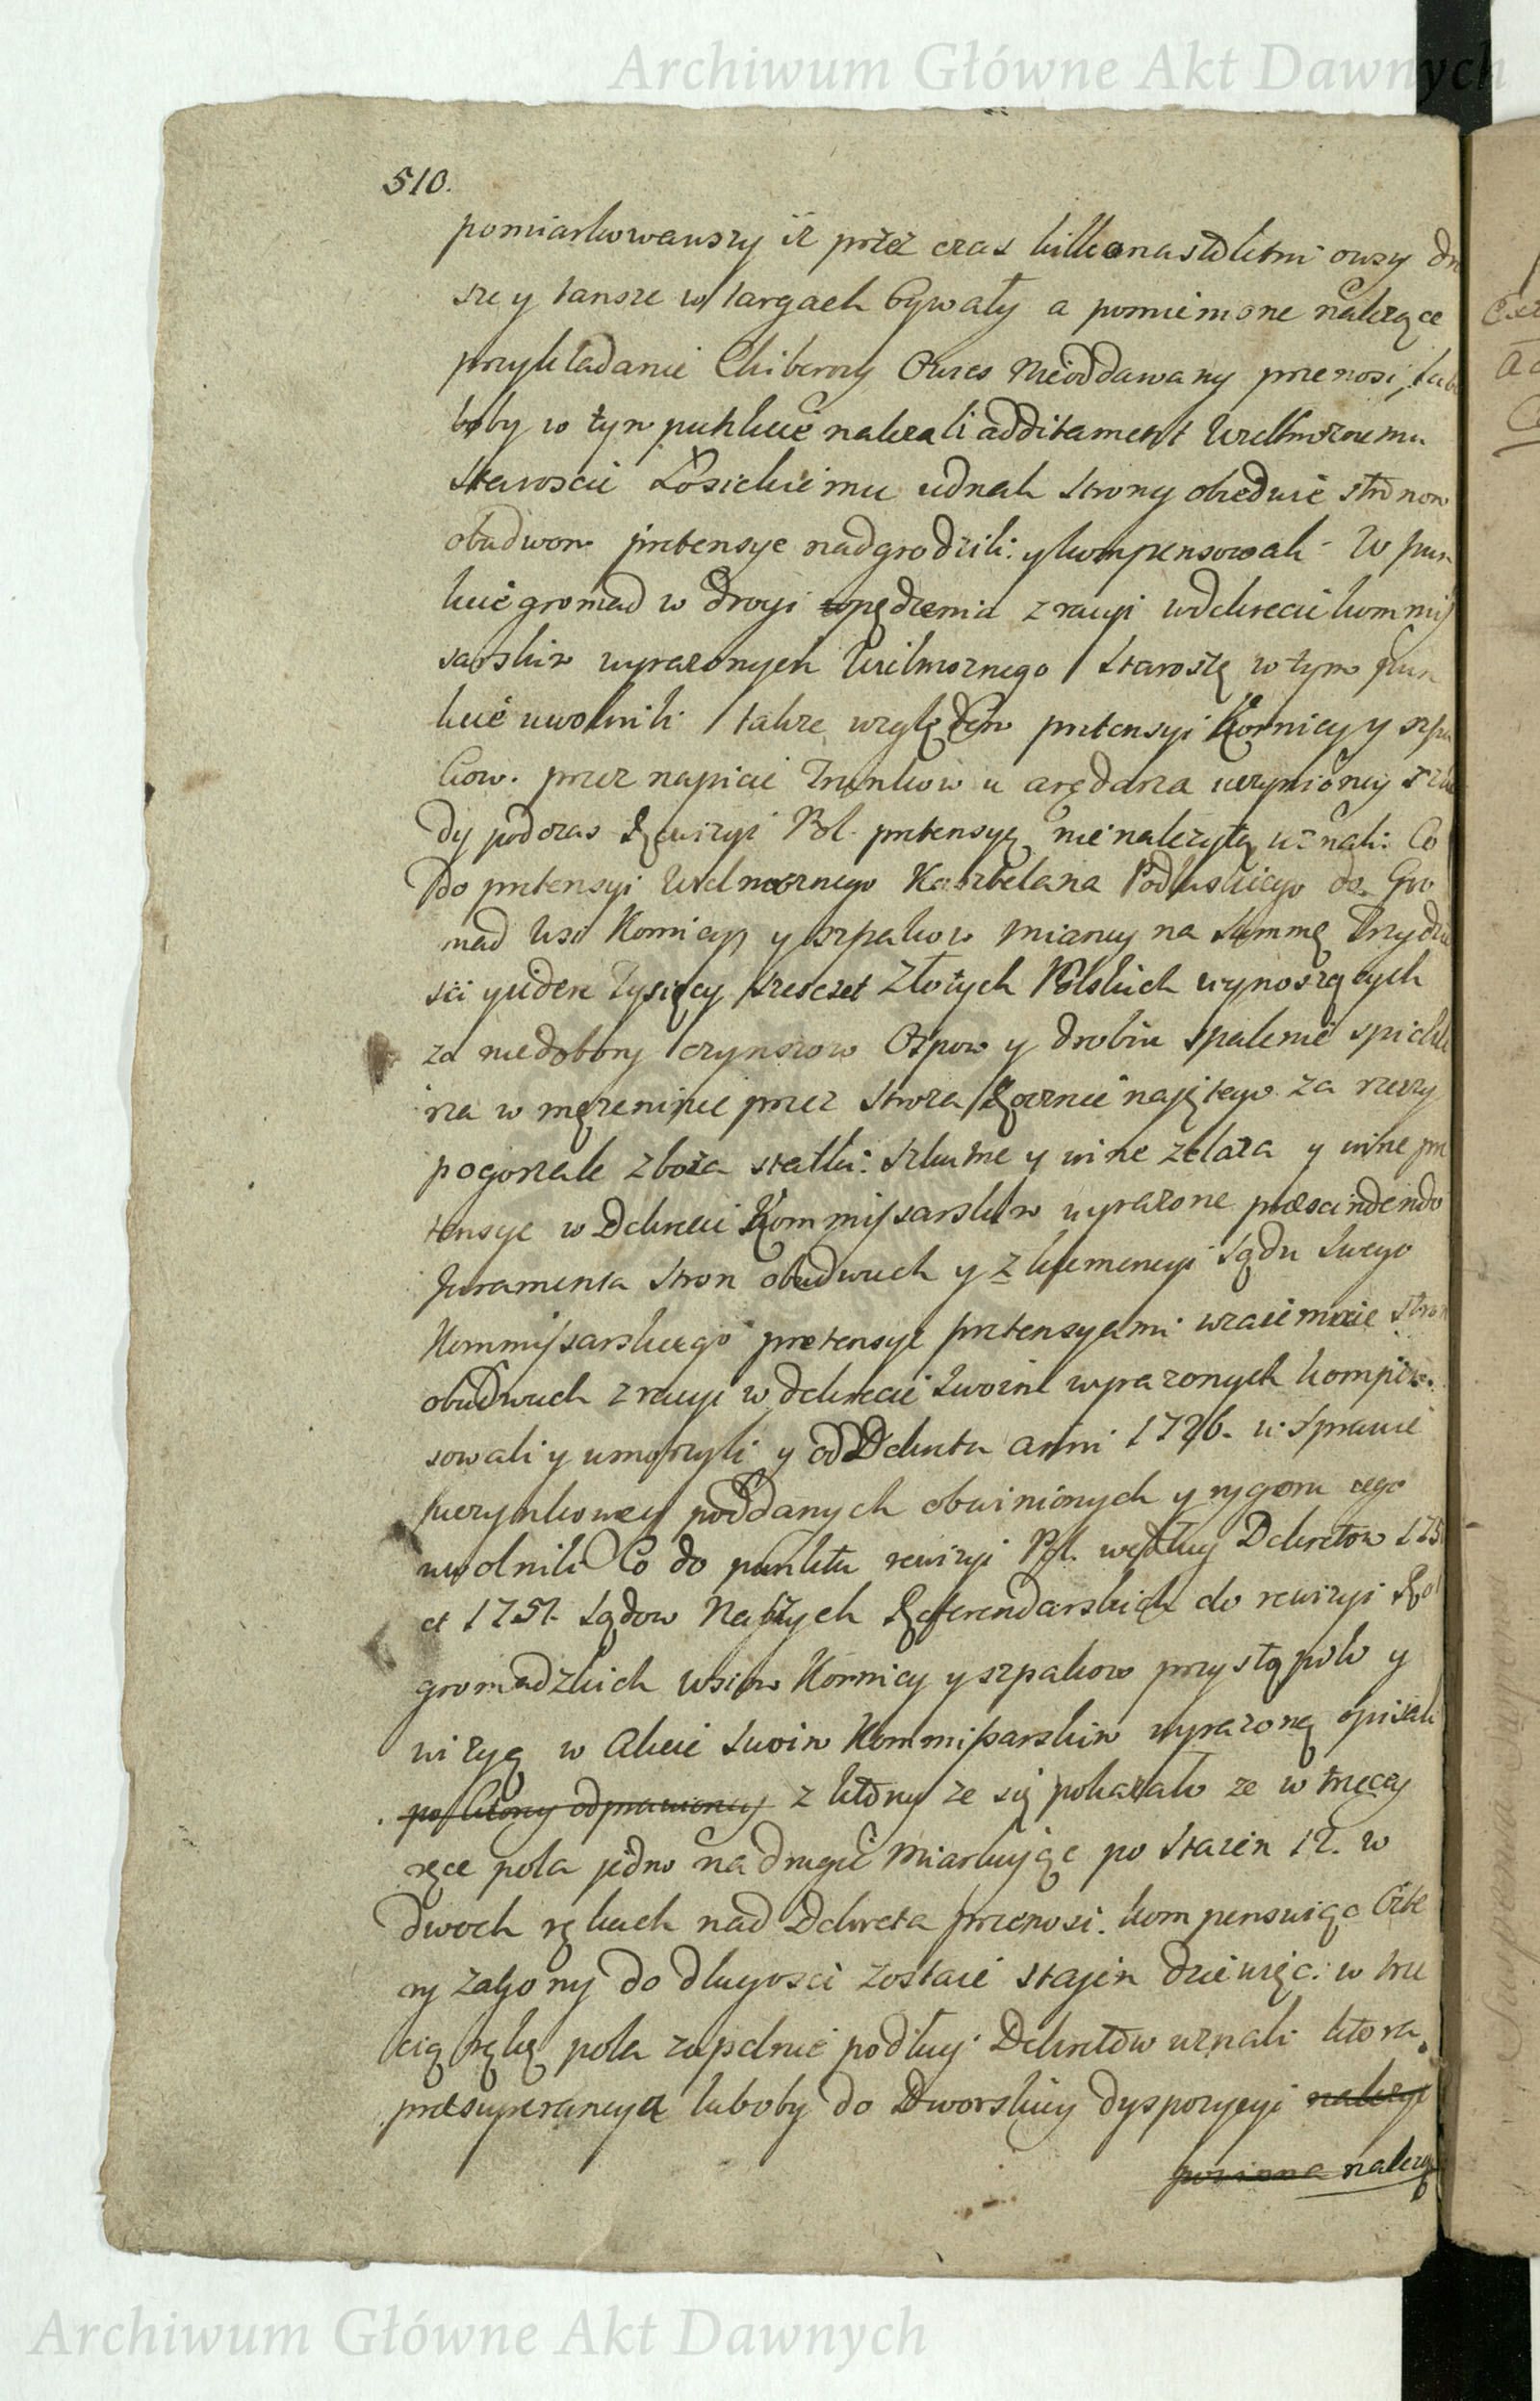 Archiwum Główne Akt Dawnych
510.
pomiarkowawszy iż przez czas kilkonastoletni owsy dro
sze y tansze w targach bywały a pomienione należące
przykładanie Owies nieoddawany przenosi, lubo
boby w tym punkcie należali additament Wielmoznemu
Staroscie Łosickiemu iednak strony obiedwie stronom
obudwom pretensye nadgrodzili: y kompensowali - W pun
kcie gromad w drogi pędzenia z racyi w dekrecie kommis
sarskim wyrazonych Wielmoznego Starostę w tym pun
kcie uwolnili: także względem pretensyi Kornicy y szpa
kow. przez napicie Trunkow u arędarza uczynioney szko
dy podczas Rewizyi Pol. pretensyą nienależytą uznali: Co
do pretensyi Wielmoznego Kasztelana Podlaskiego do Gro
mad Wsi Kornicy y szpakow mianey na Summę Trzydzie
sci yieden Tysięcy szesczet Złotych Polskich wynoszących
za niedobory czynszow Ospow y drobiu spalenie spichle
rza w męzeninie przez stroza Rocznie naiętego za rzeczy
pogorzałe zboza statki: szkutne y inne zelaza y inne pre
tensye w Dekrecie Kommissarskim wyrazone praescindendo
Juramenta Stron obudwuch y z klemencyi Sądu Swego
Kommissarskiego pretensye pretensyami wzaiemnie stron
obudwuch z racyi w dekrecie swoim wyrazonych kompen.
sowali y umorzyli y od Dekretu anni 1726. w Sprawie
uczynkowey poddanych obwinionych y rygoru iego
uwolnili Co do punktu rewizyi Pol. według Dekretow 175
et 1757. Sądow Naszych Referendarskich do rewizyi Rol
gromadzkich wsiow Kornicy y szpakow przystąpili y
wizyą w Akcie swoim Kommissarskim wyrazoną opisali
po ktorey odprawioney z ktorey ze się pokazało ze w trzeciy
ręce pola jedno na drugie miarkuiąc po Staien 12. w
dwoch rękach nad Dekreta przenosi. kompensuiąc Czte
ry zagony do długosci zostaie stajen dziewięc: w trze
cią rękę pola zupełnie podług Dekretow uznali ktora
presuperancya luboby do Dworskiey dyspozycyi należy
powinna należy
Archiwum Główne Akt Dawnych